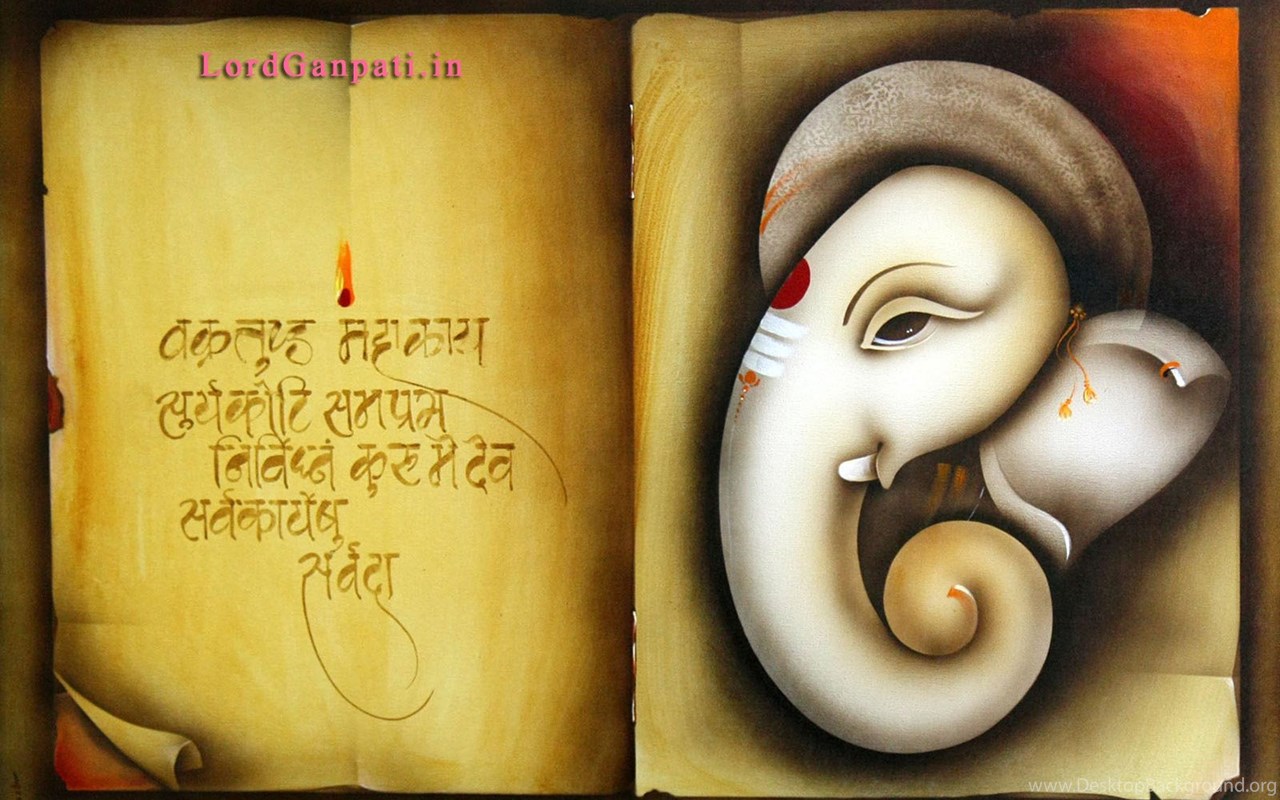 LordGanpati.in
वक्रतुण्ड महाकाय
सुर्यकोटि समप्रभ
निर्विघ्नं कुरु मे देव
सर्वकार्येषु
सर्वदा
www.DesktopBackground.org